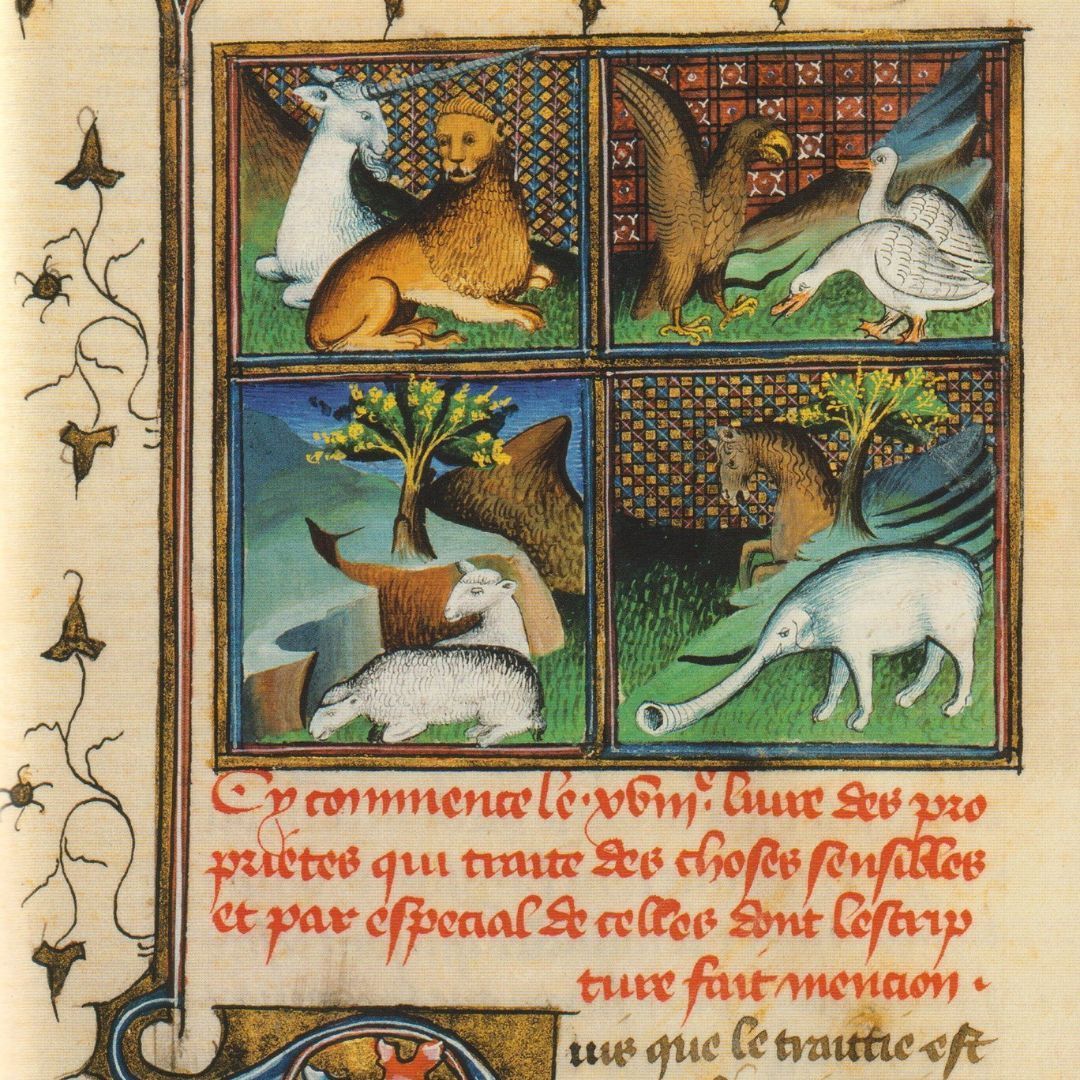 Cy commence le .xviije. liure des pro
prietes qui traite des choses sensibles
et par especial de celles dont lescrip
ture fait mencion .
uis que le traittie est